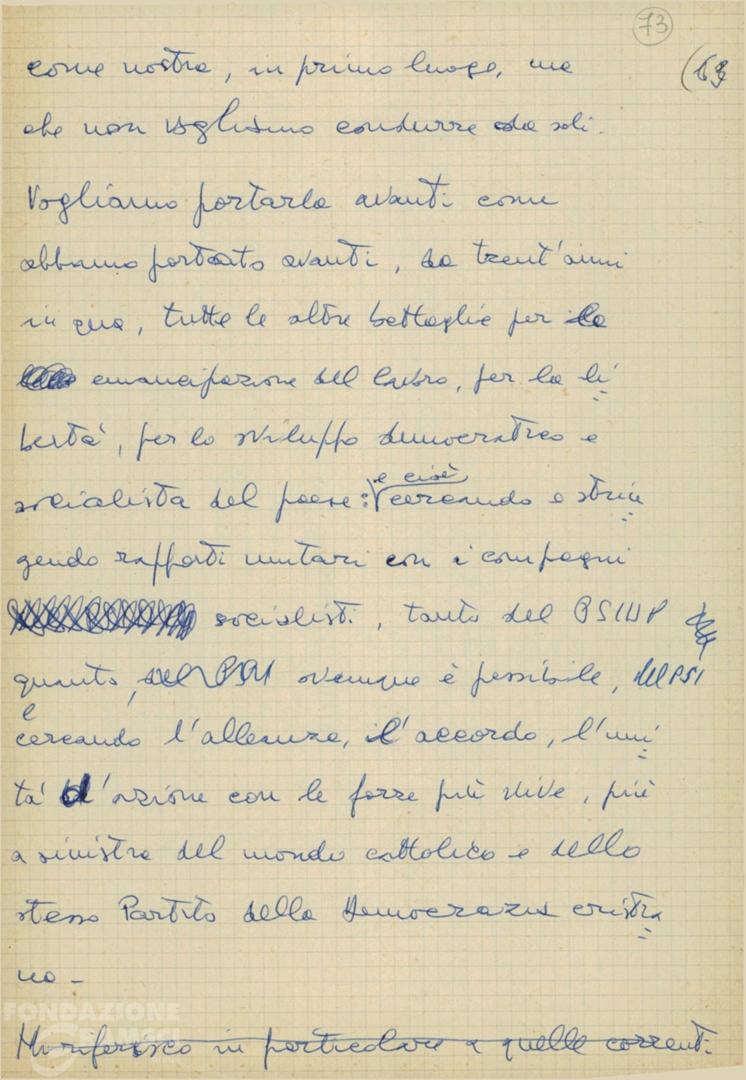 73
(63
come nostra, in primo luogo, ma
che non vogliamo condurre da soli.
Vogliamo portarla avanti come
abbiamo portato avanti, da trent'anni
in qua, tutte le altre battaglie per la
emancipazione del lavoro, per la li
bertà, per lo sviluppo democratico e
socialista del paese: e cioè cercando e strin
gendo rapporti unitari con i compagni
socialisti, tanto del PSIUP
quanto, ovunque è possibile, del PSI
e
cercando l'alleanza, l'accordo, l'uni
tà d'azione con le forze più vive, più
a sinistra del mondo cattolico e dello
stesso Partito della Democrazia cristia
na -
Mi riferisco in particolare a quelle correnti
FONDAZIONE